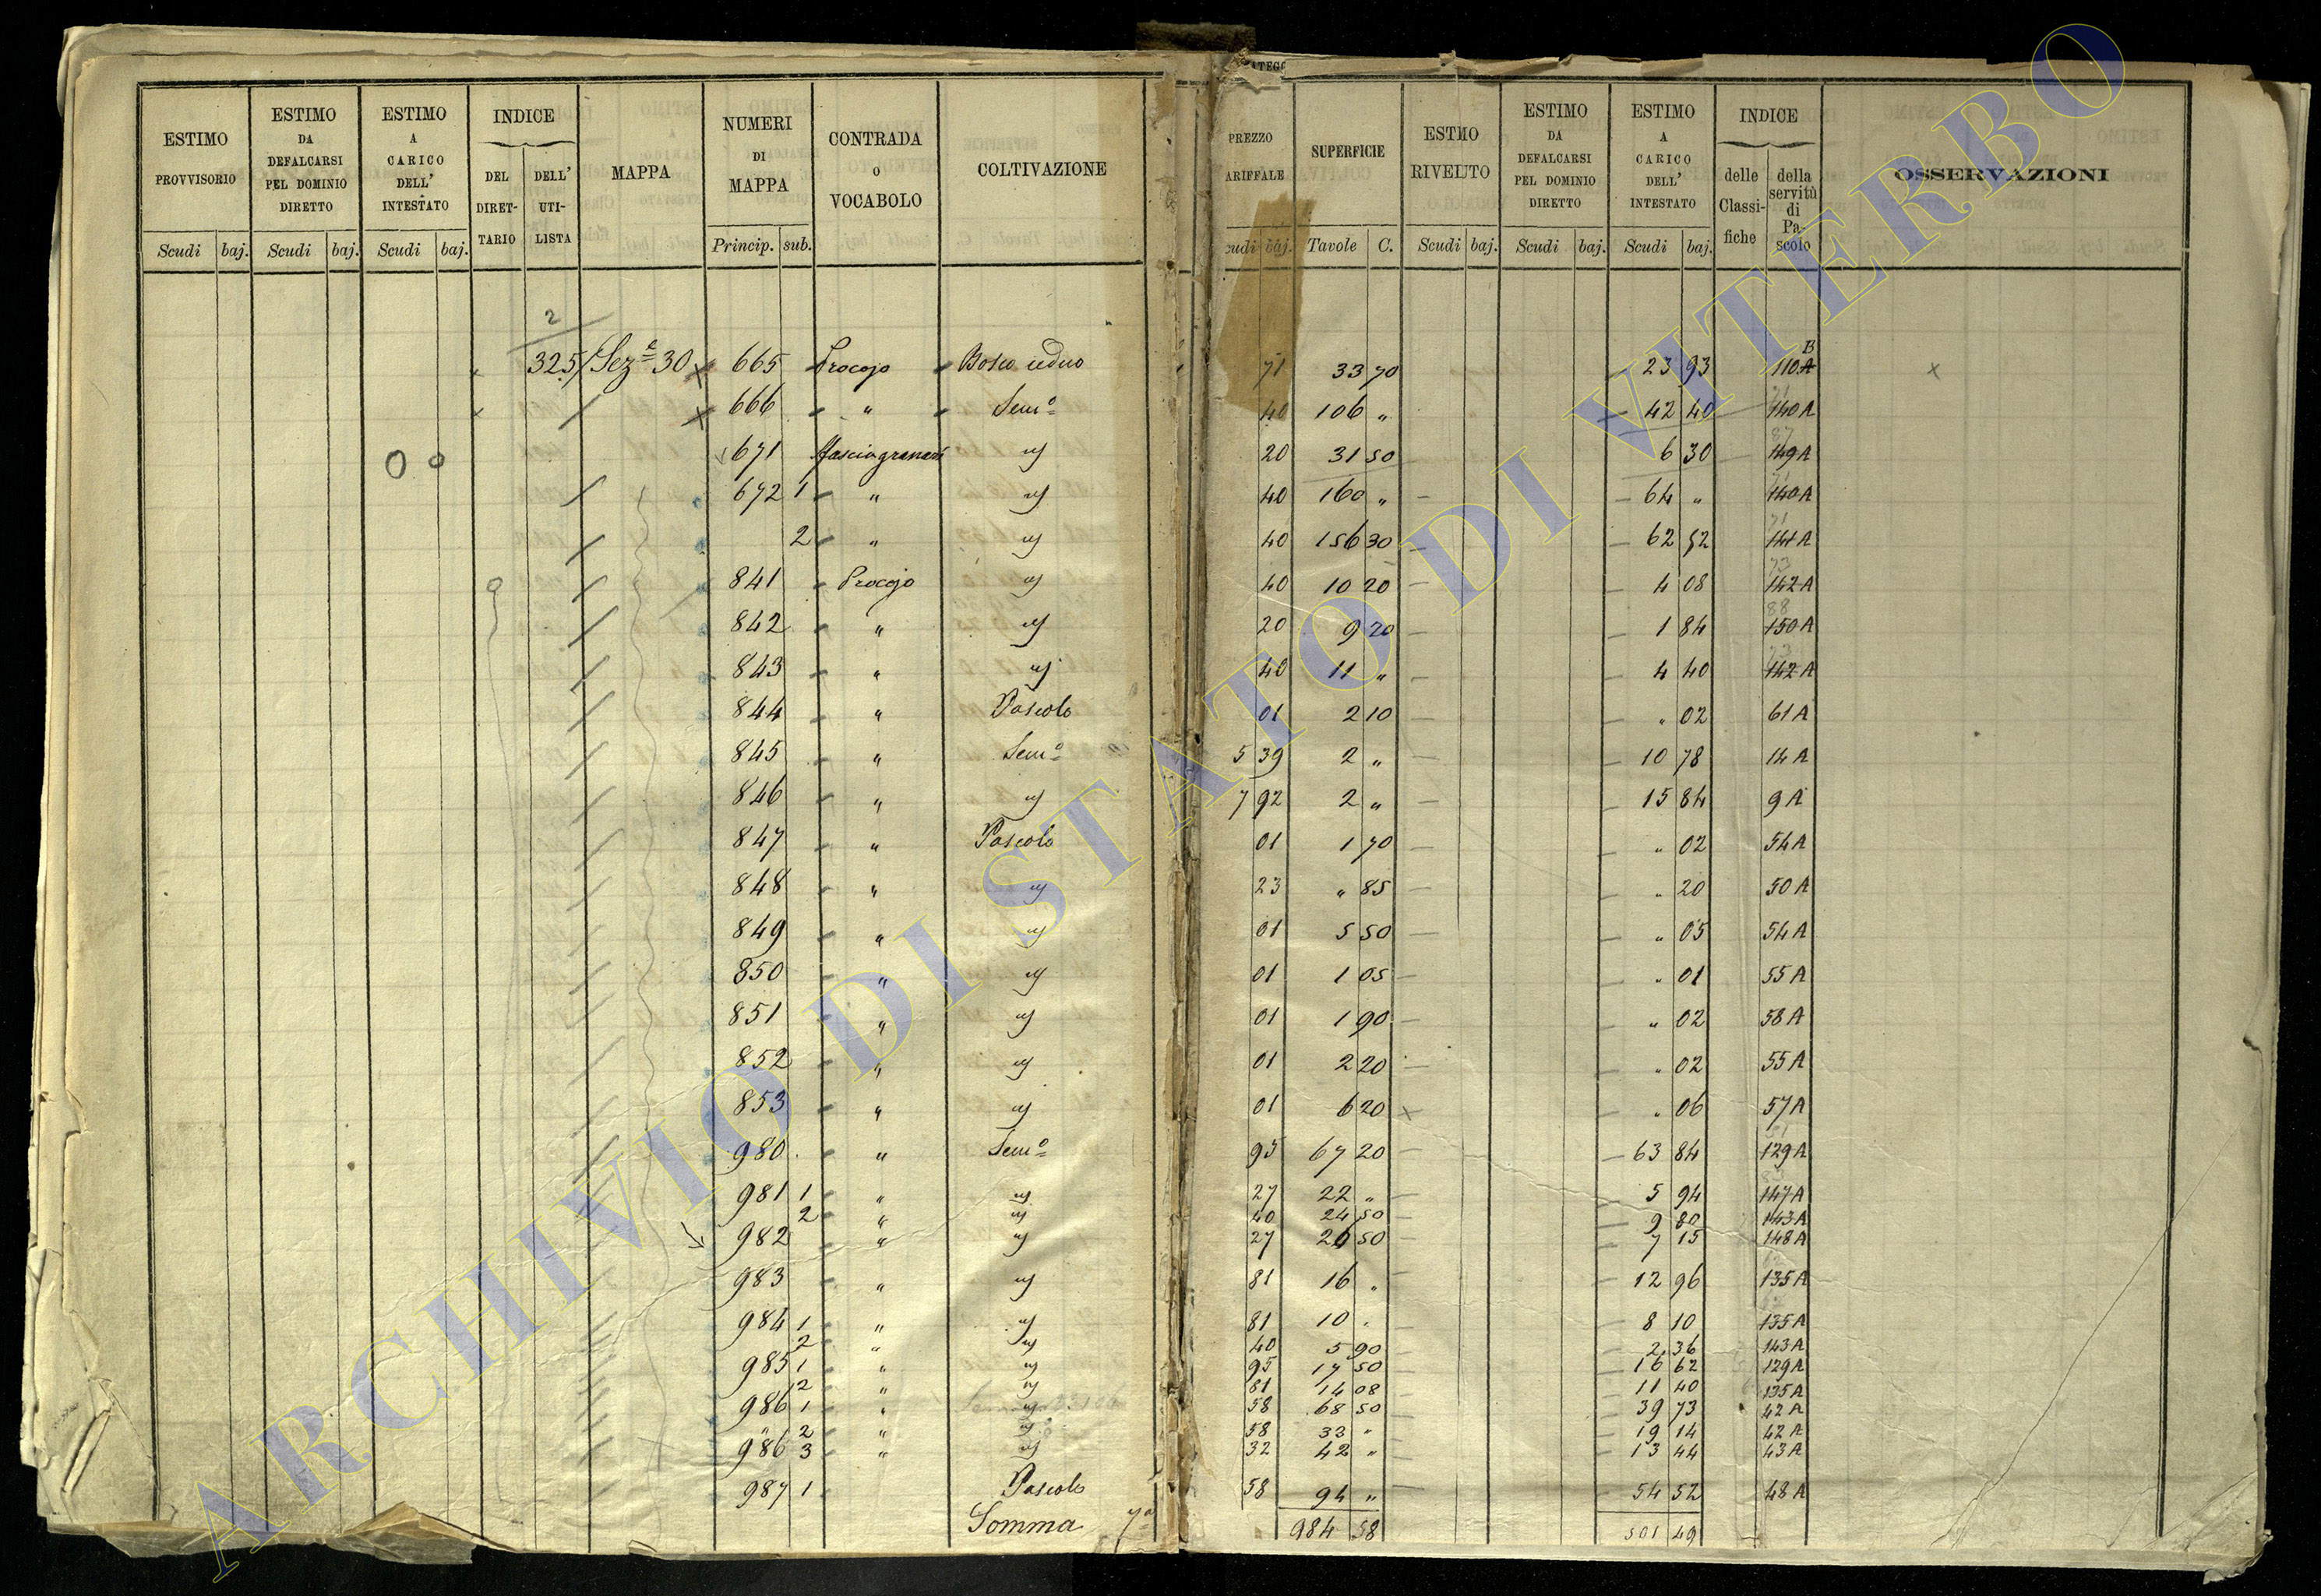 ESTIMO PROVVISORIO | ESTIMO DA DEFALCARSI PEL DOMINIO DIRETTO | ESTIMO A CARICO DELL' INTESTATO | INDICE DEL DIRET-TARIO | DELL' UTI-LISTA | MAPPA | NUMERI DI MAPPA | CONTRADA O VOCABOLO | COLTIVAZIONE | PREZZO ARIFFALE | SUPERFICIE | ESTIMO RIVEDUTO | ESTIMO DA DEFALCARSI PEL DOMINIO DIRETTO | ESTIMO A CARICO DELL' INTESTATO | INDICE delle Classi-fiche | della servitù di Pa-scolo | OSSERVAZIONI
Scudi baj. Scudi baj. Scudi baj. Princip. sub. cudi baj. Tavole C. Scudi baj. Scudi baj. Scudi baj.
2
325 Sez.e 30 665 Procojo Bosco ceduo 71 33 70 23 93 110 A B
666 " Sem.o 40 106 " 42 40 140 A
0 0 671 20 31 50 6 30 149 A
672 1 " id 40 160 " 64 " 140 A
2 " id 40 156 30 62 52 141 A
841 Procojo id 40 10 20 4 08 142 A
842 " id 20 9 20 1 84 150 A
843 " id 40 11 " 4 40 142 A
844 " Pascolo 01 2 10 " 02 61 A
845 " Sem.o 5 39 2 " 10 78 14 A
846 " id 7 92 2 " 15 84 9 A
847 " Pascolo 01 1 70 " 02 54 A
848 " id 23 " 85 " 20 50 A
849 " id 01 5 50 " 05 54 A
850 " id 01 1 05 " 01 55 A
851 " id 01 1 90 " 02 58 A
852 " id 01 2 20 " 02 55 A
853 " id 01 6 20 " 06 57 A
980 " Sem.o 95 67 20 63 84 129 A
981 1 " id 27 22 " 5 94 147 A
2 " id 40 24 50 9 80 143 A
982 " id 27 26 50 7 15 148 A
983 " id 81 16 " 12 96 135 A
984 1 " id 81 10 " 8 10 135 A
2 " id 40 5 90 2 36 143 A
985 1 " id 95 17 50 16 62 129 A
2 " id 81 14 08 11 40 135 A
986 1 " id 58 68 50 39 73 42 A
" 2 " id 58 33 " 19 14 42 A
986 3 " id 32 42 " 13 44 43 A
987 1 Pascolo 58 94 " 54 52 48 A
Somma 7a 984 58 501 49
ARCHIVIO DI STATO DI VITERBO